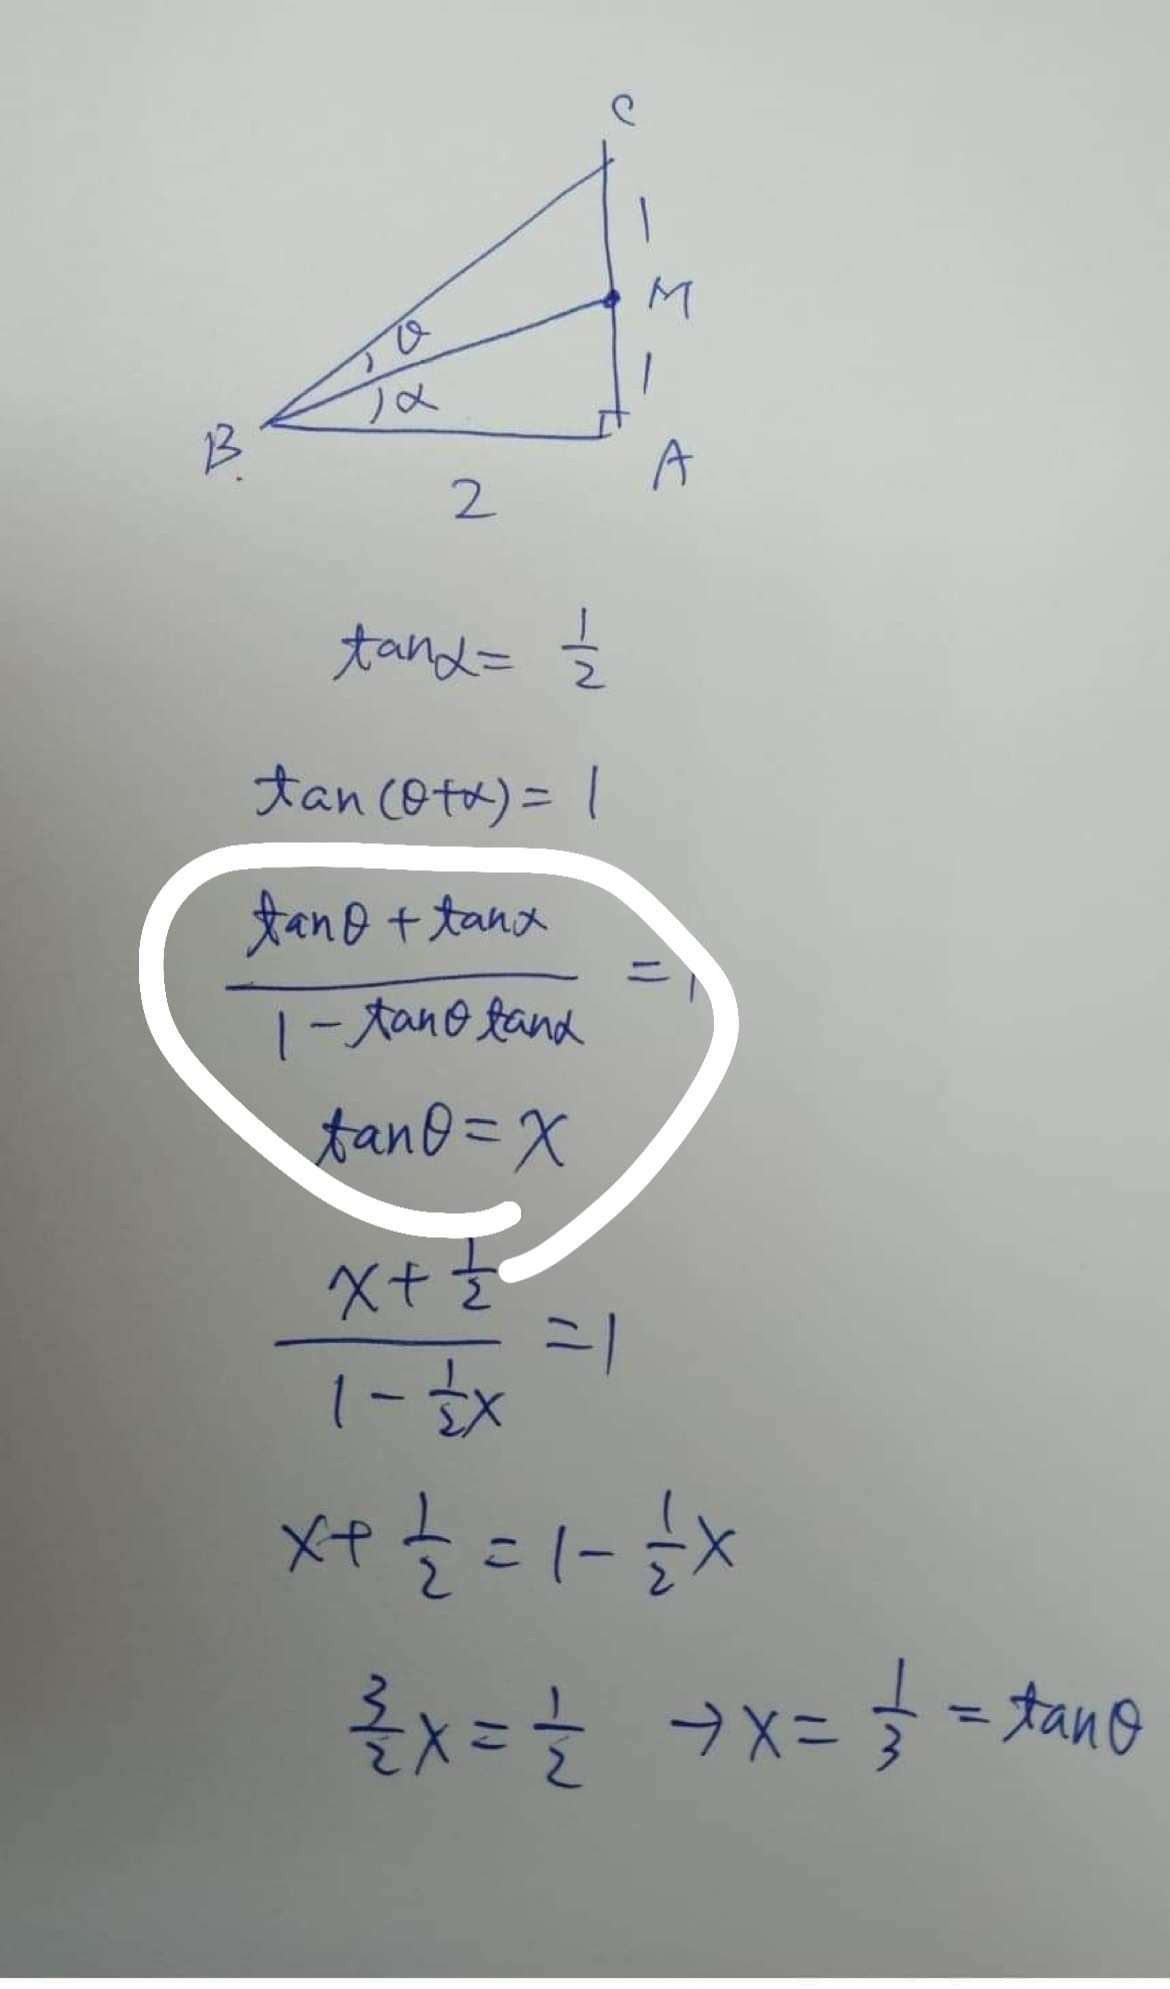 C
1
M
θ
1
α
B.
A
2
tanα = 1/2
tan(θ+α) = 1
(tanθ + tanα)/(1 - tanθ tanα) = 1
tanθ = x
(x + 1/2)/(1 - 1/2x) = 1
x + 1/2 = 1 - 1/2x
3/2x = 1/2 → x = 1/3 = tanθ